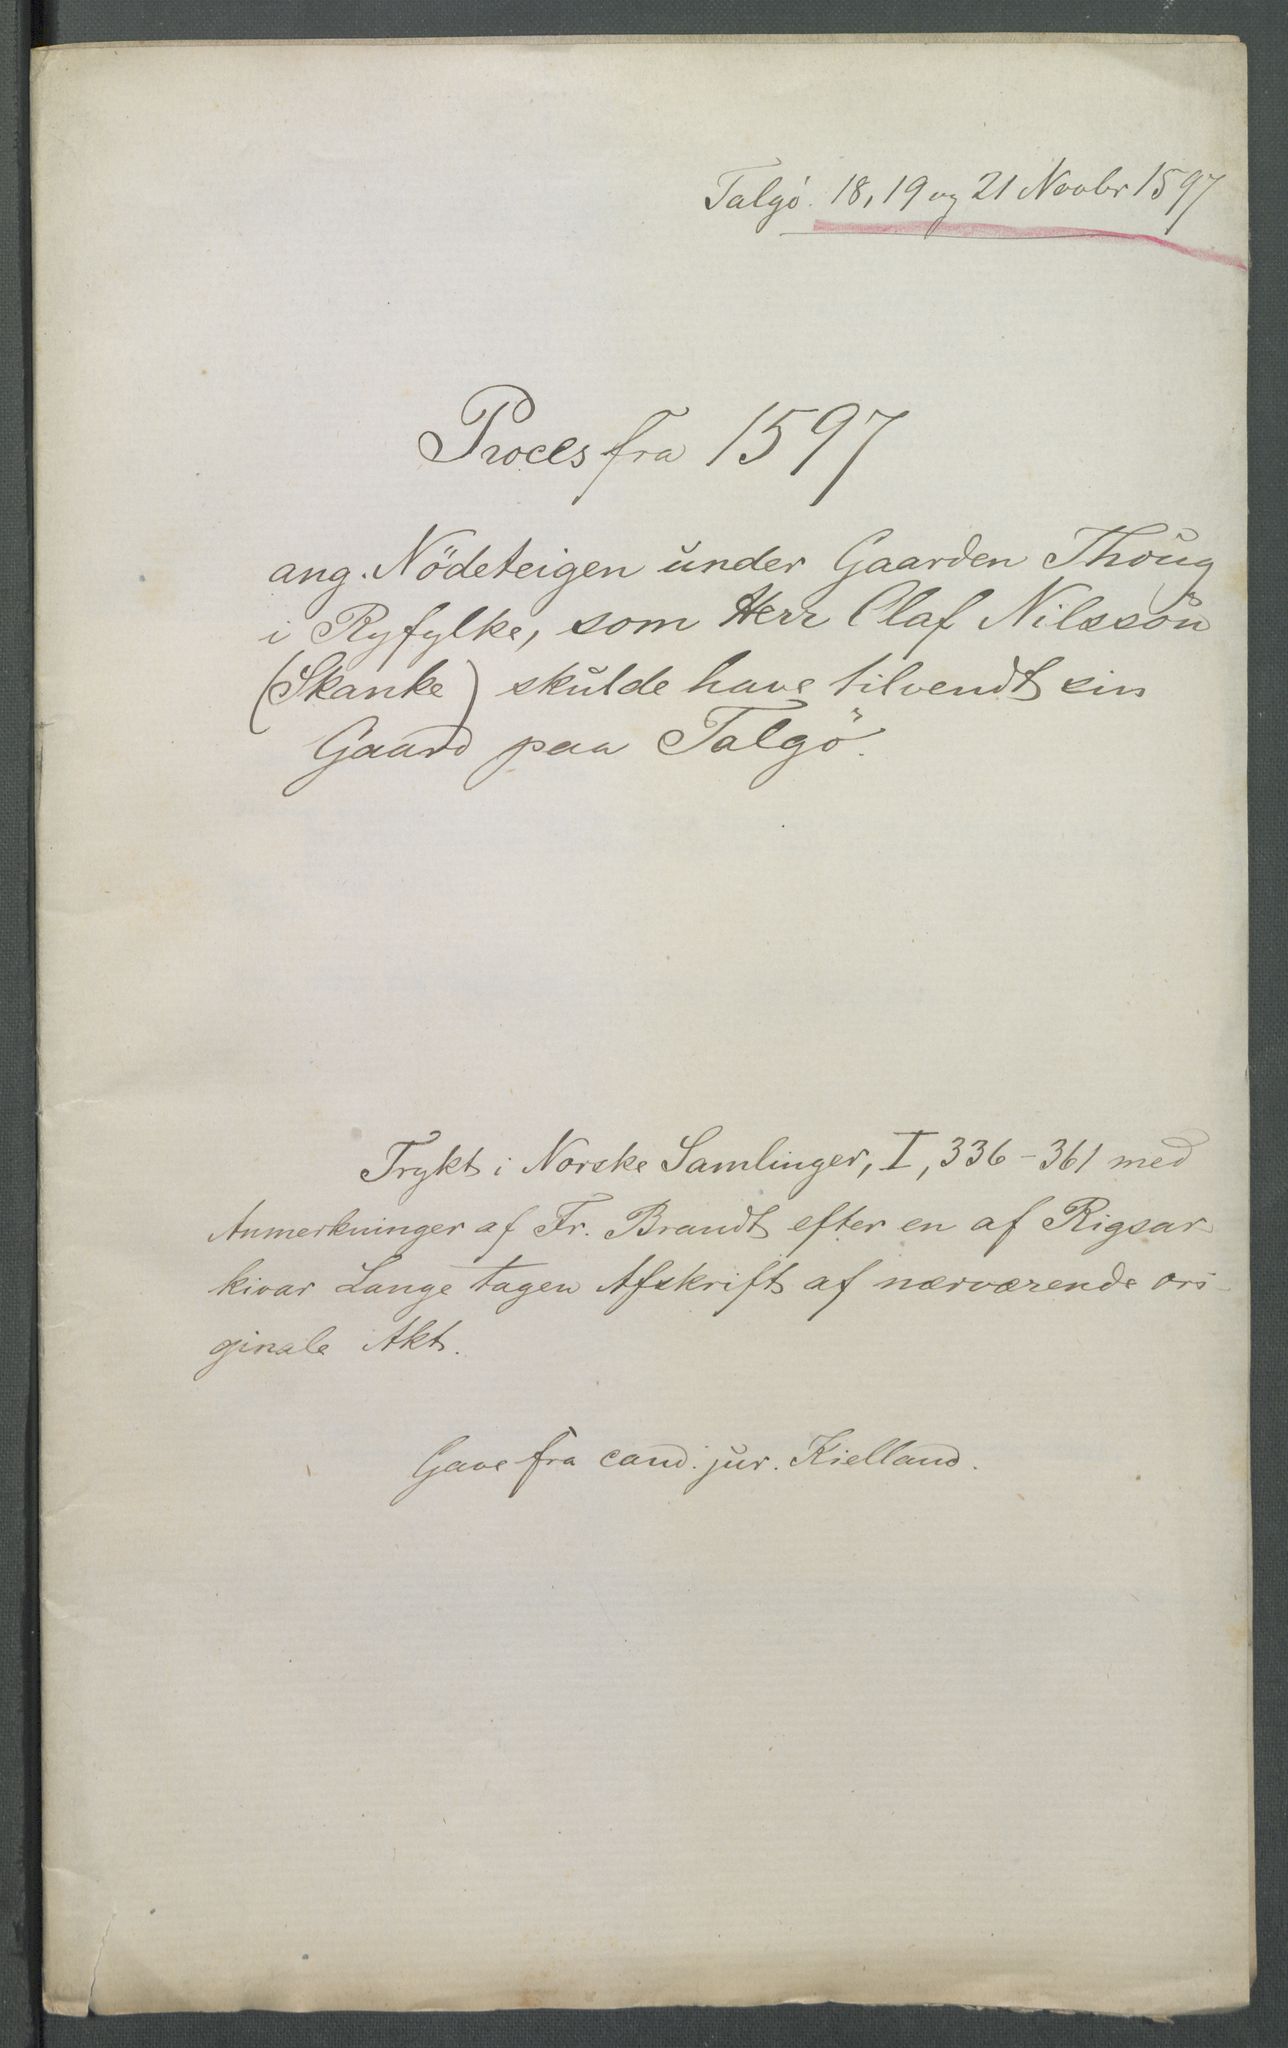 Talgö. 18, 19 og 21 Novbr 1597
Proces fra 1597
ang. Nödeteigen under Gaarden Thoug
i Ryfylke, som Herr Olaf Nilssön
(Skanke) skulde have tilvendt sin
Gaard paa Talgö.
Trykt i Norske Samlinger, I, 336-361 med
Anmerkninger af Fr. Brandt efter en af Rigsar-
kivar Lange tagen Afskrift af nærværende ori-
ginale Akt.
Gave fra cand. jur. Kielland.